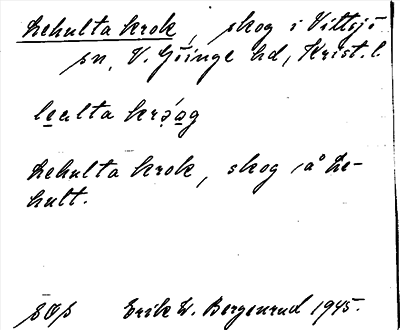 Lehulta krok, skog i Vittsjö
sn, V. Göinge hd, Krist. l.
lealta krǫ́ǫg
Lehulta krok, skog å Le-
hult.
Erik W. Bergenrud 1945.